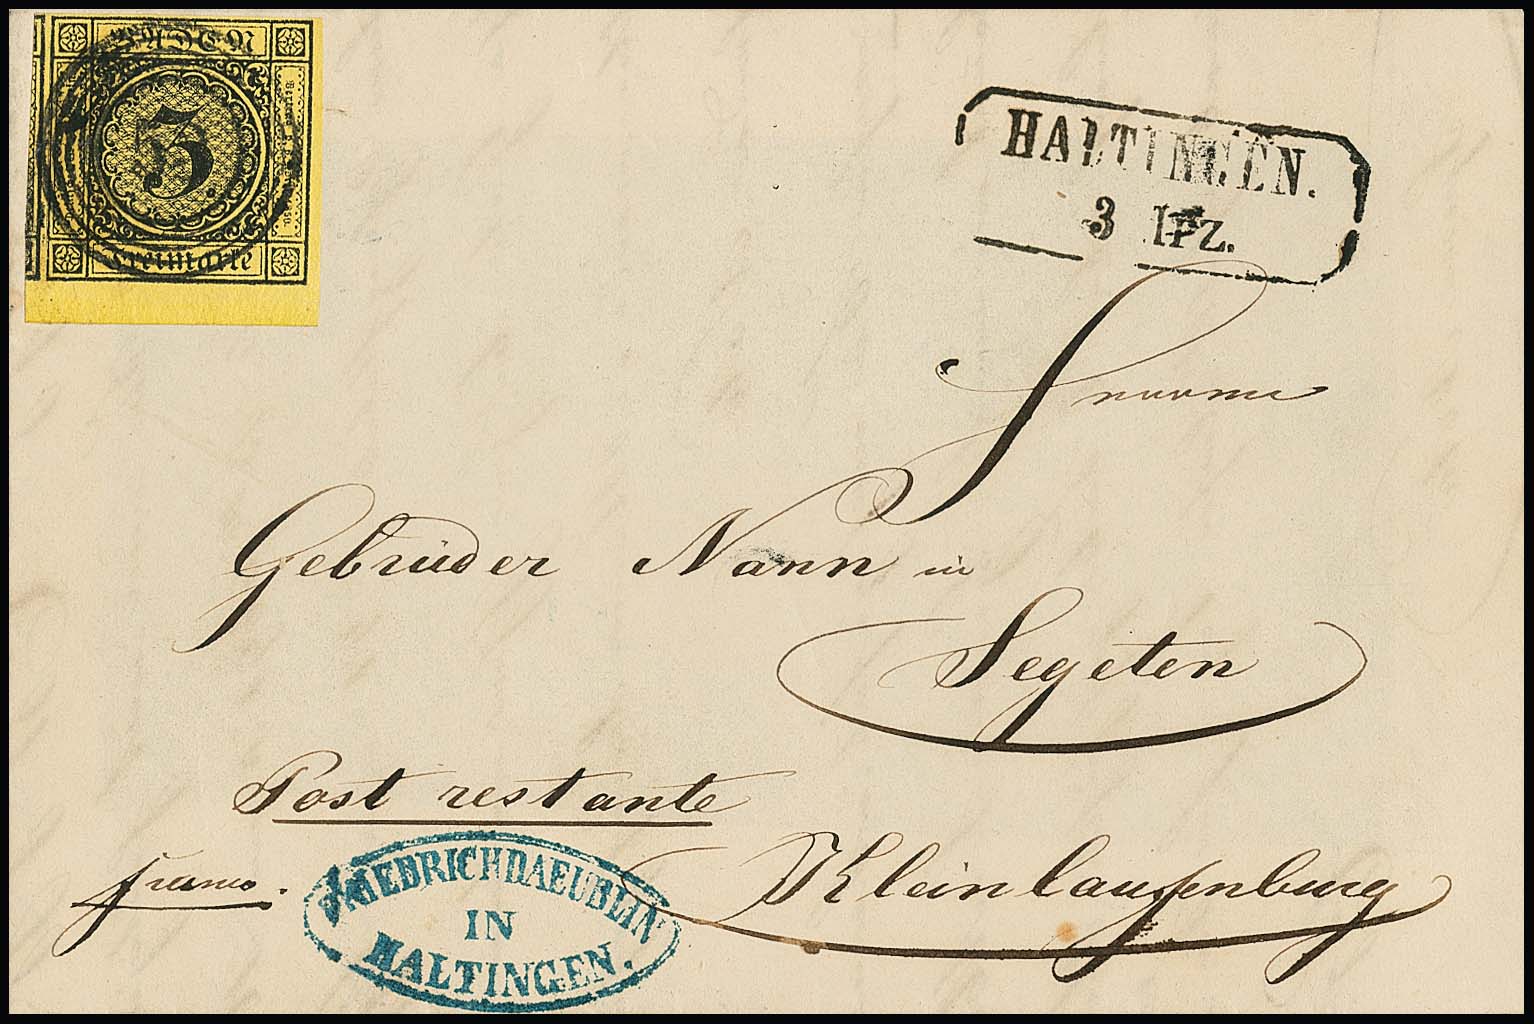 BADEN
3
Freimarke
HALTINGEN.
3 Mrz.
Gebrüder Nann in
Segeten
Post restante
franco.
Kleinlaufenburg
FRIEDRICH DAEUBLIN
IN
HALTINGEN.